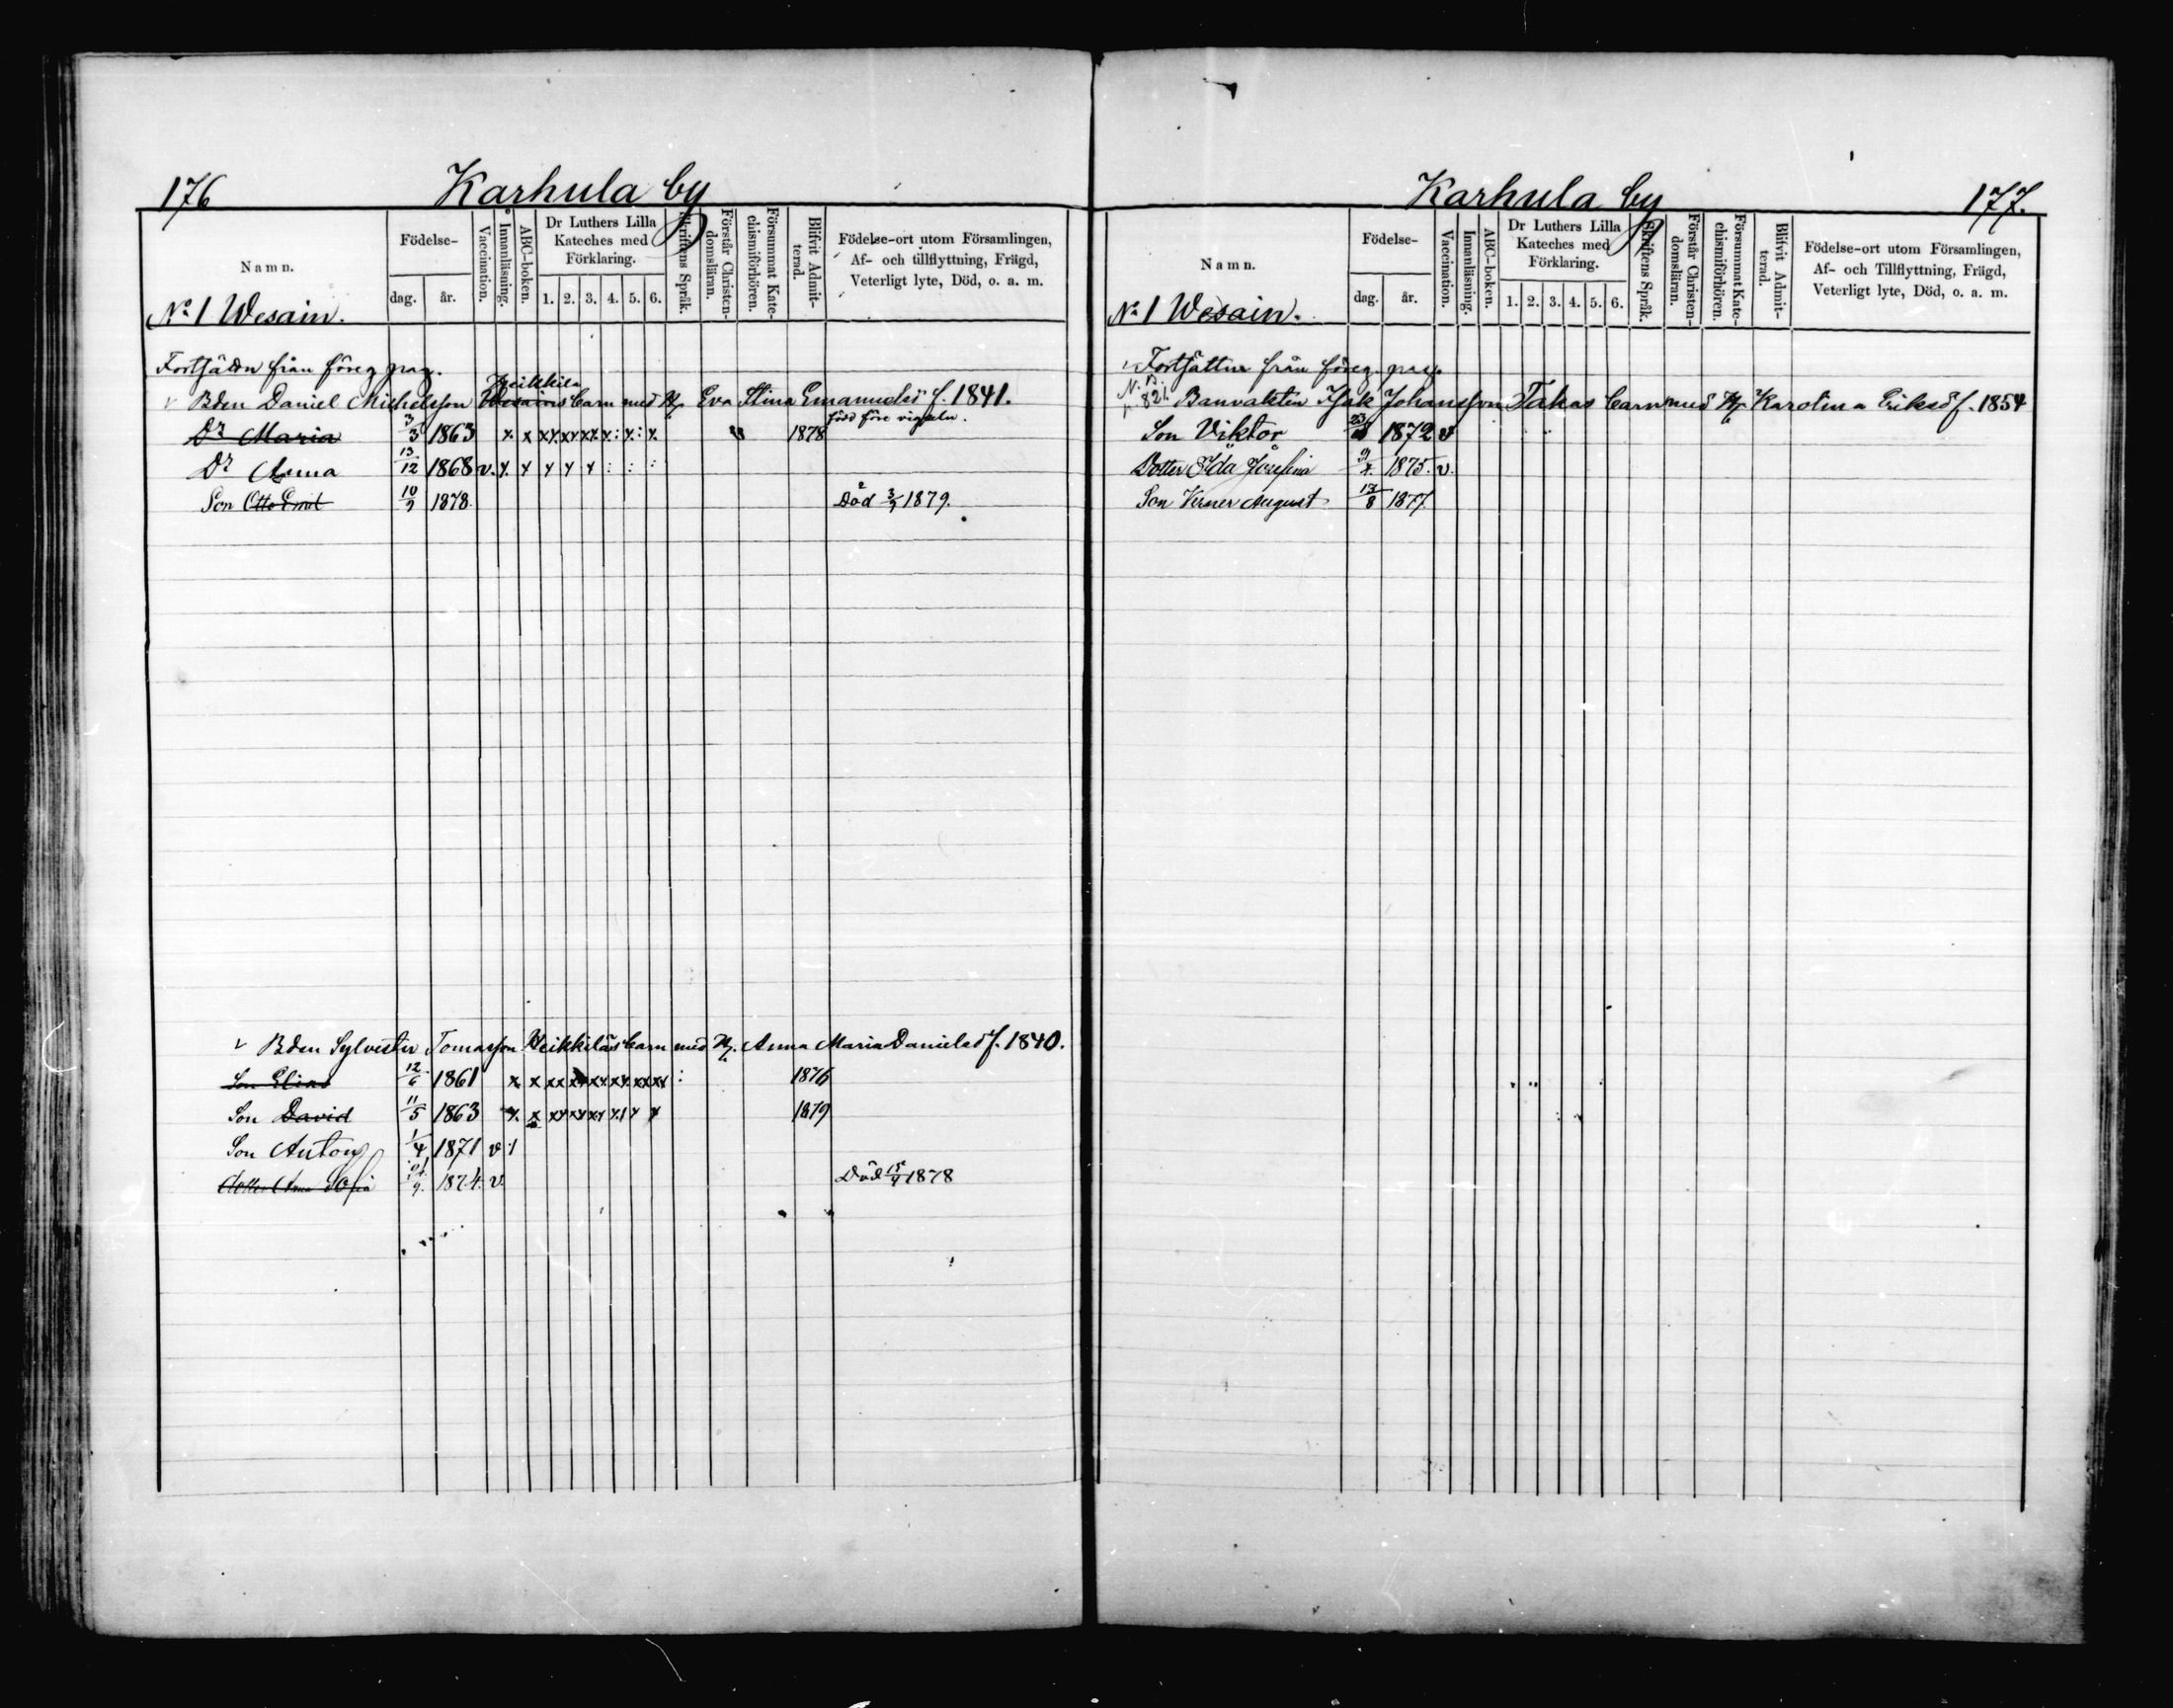 176 Karhula by
Namn. Födelse- dag. år. Vaccination. Innanläsning. ABC-boken. Dr Luthers Lilla Kateches med Förklaring. 1. 2. 3. 4. 5. 6. Skriftens Språk. Förstår Christendomsläran. Försummat Katechismiförhören. Blifvit Admitterad. Födelse-ort utom Församlingen, Af- och tillflyttning, Frägd, Veterligt lyte, Död, o. a. m.
No 1 Wesain.
från föreg. pag.
Heikkila
v Bden Daniel Michelsson Wesains barn med H. Eva Stina Emanuelsd f. 1841.
född före vigseln.
Dr Maria 3/3 1863 1878
Dr Anna 13/12 1868 v.
Son Otto Emil 10/9 1878. Död 1879.
v Bden Sylvester Tomasson Heikkiläs barn med H. Anna Maria Danielsd f. 1840.
Son Elias 12/6 1861 1876
Son David 11/5 1863 1879
Son Anton 1/4 1871 v
Dotter Anna Sofia 1874. v. Död 1878
Karhula by 177.
Namn. Födelse- dag. år. Vaccination. Innanläsning. ABC-boken. Dr Luthers Lilla Kateches med Förklaring. 1. 2. 3. 4. 5. 6. Skriftens Språk. Förstår Christendomsläran. Försummat Katechismiförhören. Blifvit Admitterad. Födelse-ort utom Församlingen, Af- och Tillflyttning, Frägd, Veterligt lyte, Död, o. a. m.
No 1 Wesain.
Fortsättn från föreg. pag.
N. B. p. 821. Banvakten Isak Johansson Takas barn med H. Karolina Eriksd f. 1854
Son Viktor 1872 v
Dotter Ida Josefina 1875. v.
Son Verner August 17/8 1877